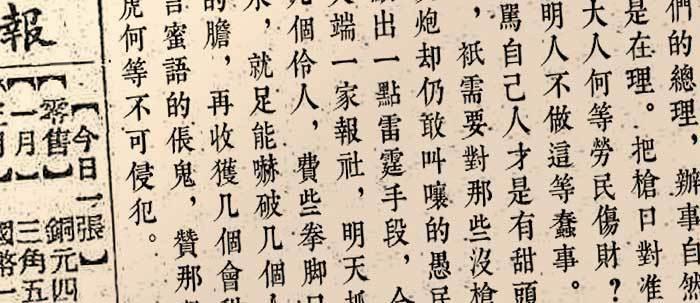 們的總理，辦事自然
是在理。把槍口對准
大人何等勞民傷財？
明人不做這等蠢事。
罵自己人才是有甜頭
，祇需要對那些沒槍
炮却仍敢叫嚷的愚民
出一點雷霆手段，
天端一家報社，明天抓
几個伶人，費些拳脚
水，就足能嚇破几個人
的膽，再收獲几個會
言蜜語的倀鬼，贊那
虎何等不可侵犯。
報
【今日一張】
【零售】 銅元四
【一月】 三角五
月】 國幣一